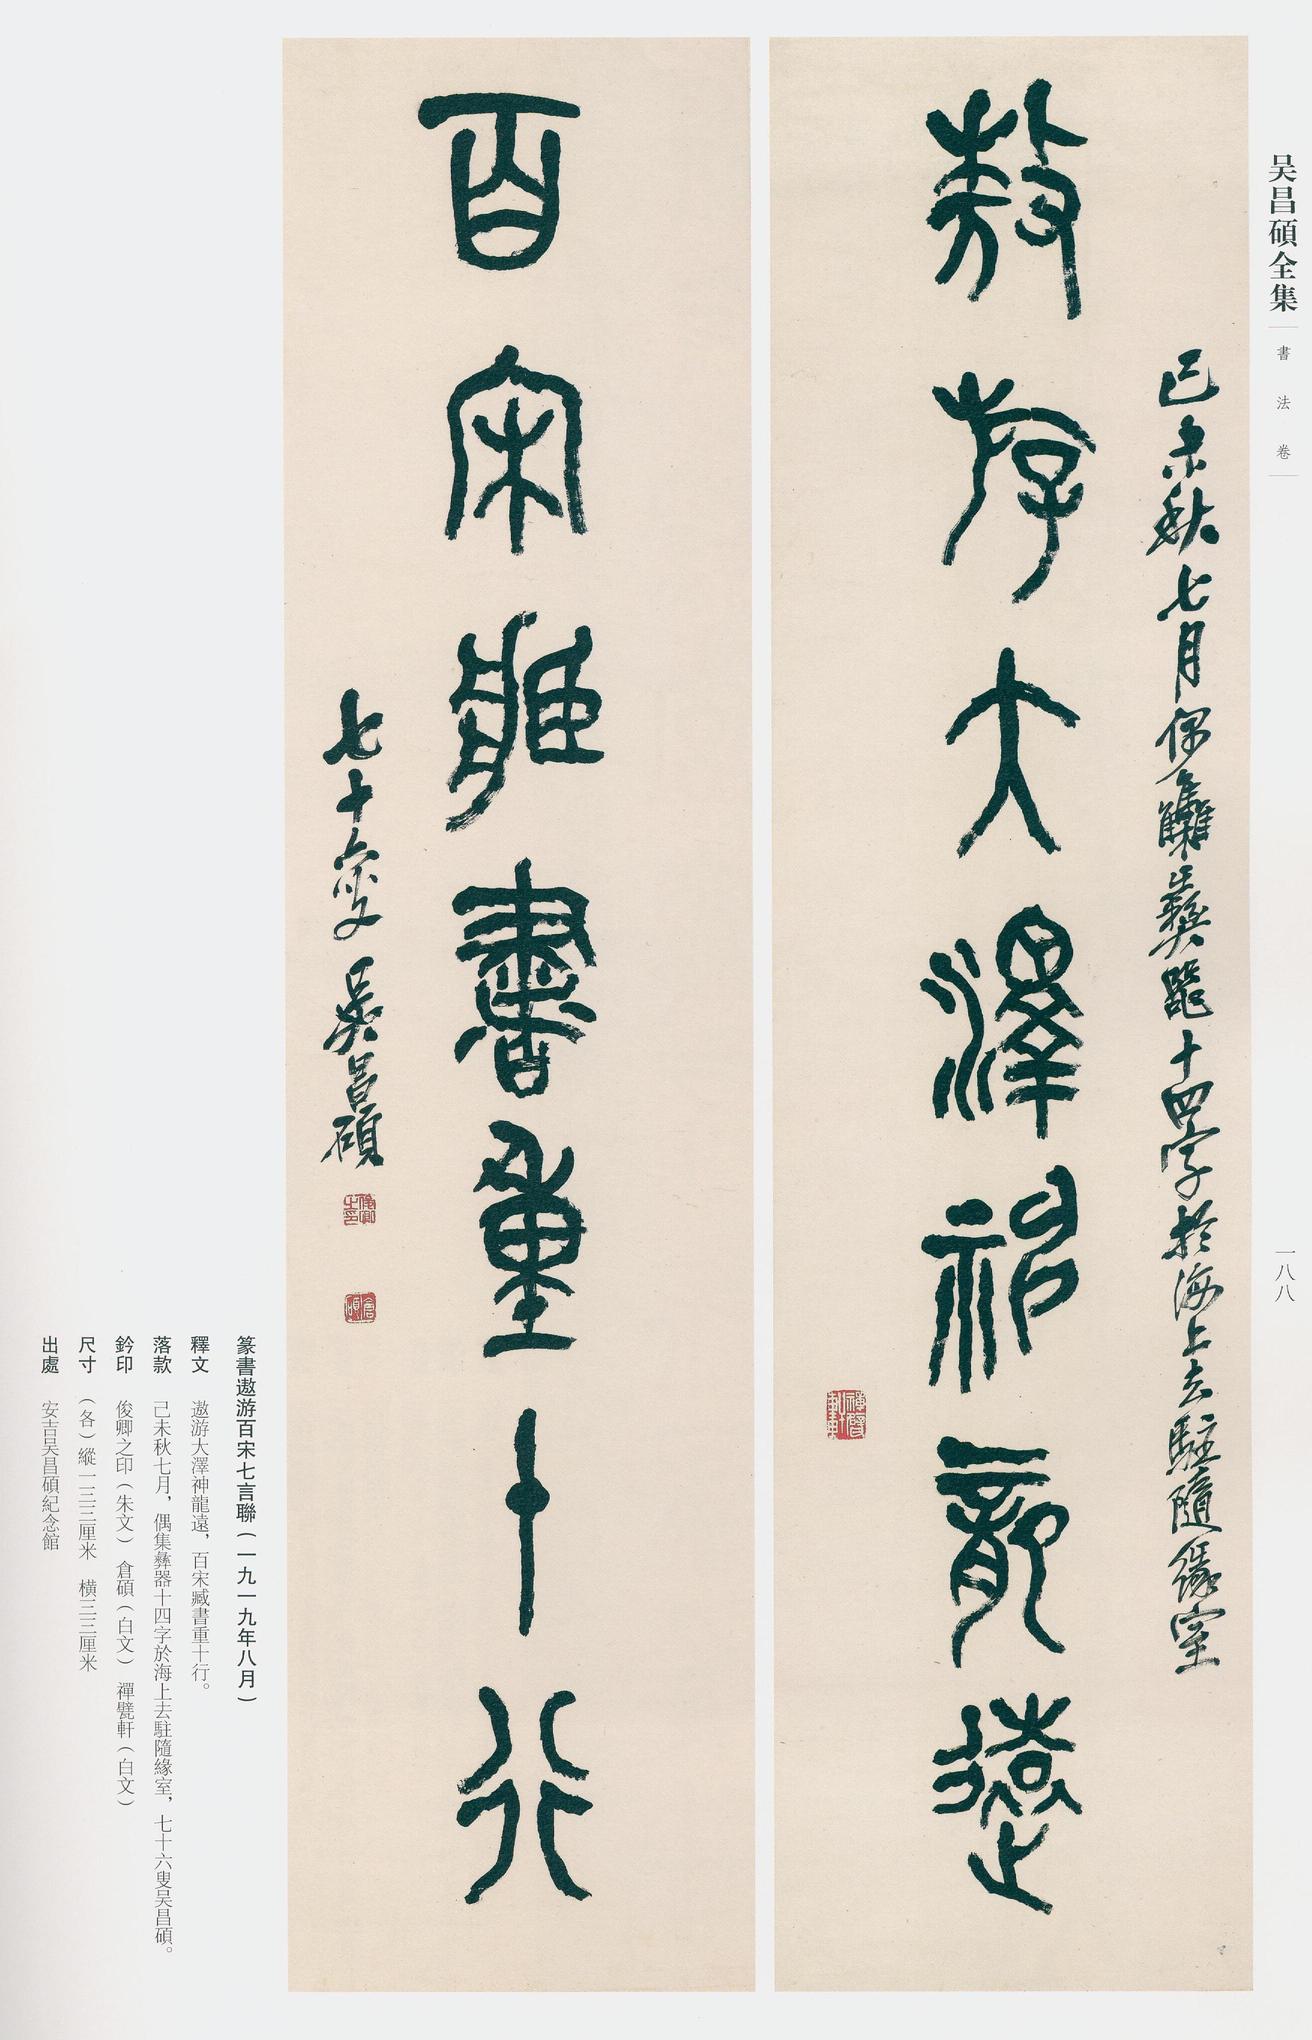 吴昌碩全集
書法卷
一八八
己未秋七月偶雧彝器十四字於海上去駐隨緣室
敖游大澤神龍遠
百宋臧書重十行
七十六叟吳昌碩
篆書遨游百宋七言聯（一九一九年八月）
釋文 遨游大澤神龍遠，百宋臧書重十行。
落款 己未秋七月，偶集彝器十四字於海上去駐隨緣室，七十六叟吴昌碩。
鈐印 俊卿之印（朱文） 倉碩（白文） 禪甓軒（白文）
尺寸 （各）縱一三三厘米 橫三三厘米
出處 安吉吴昌碩紀念館